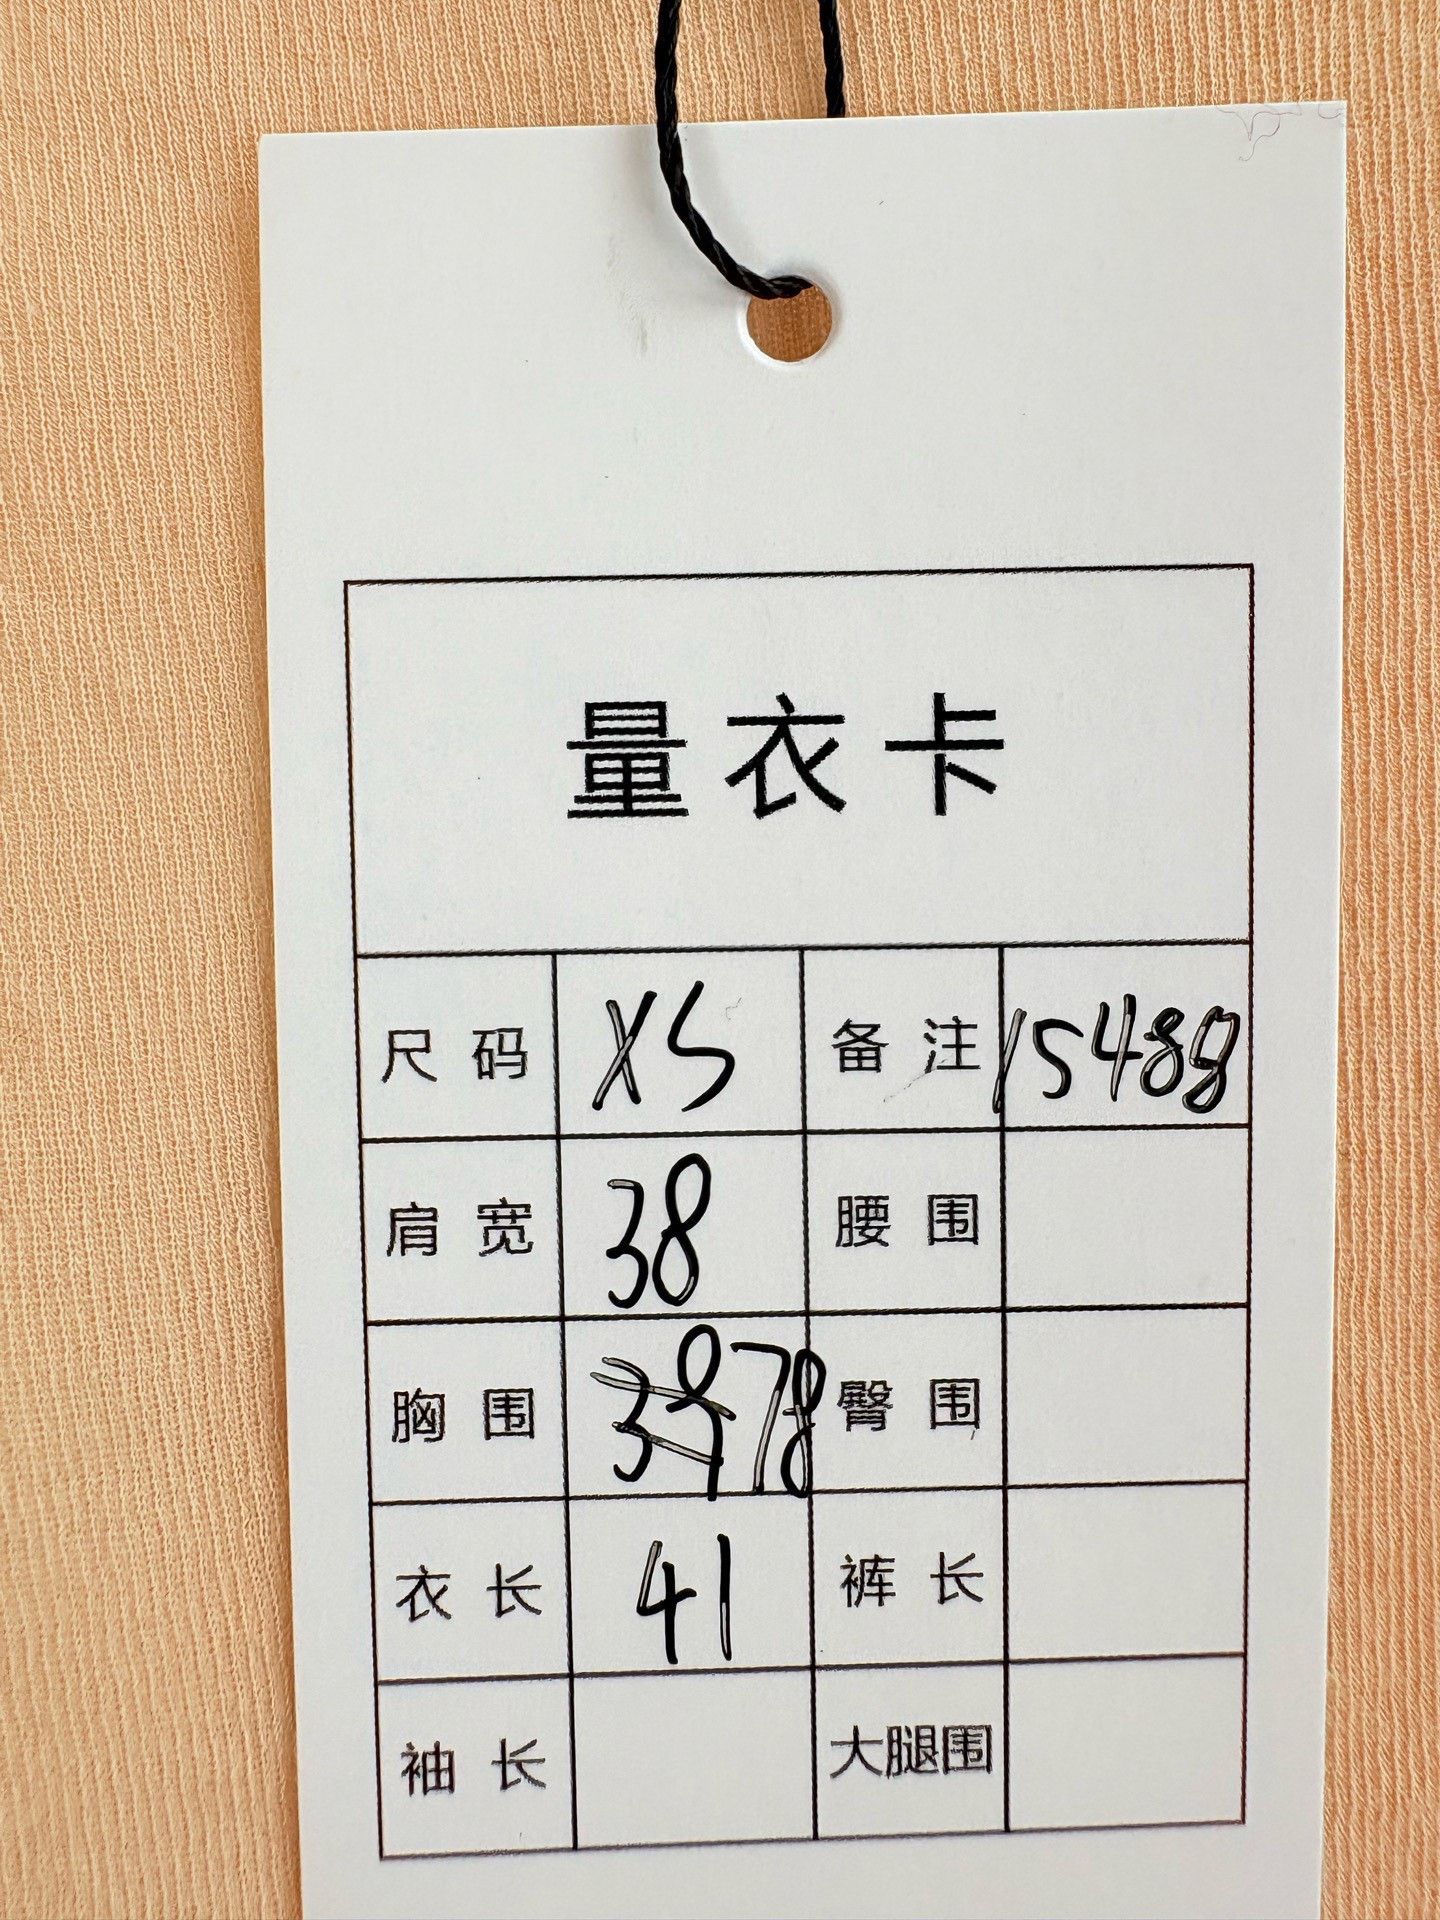 量衣卡
尺码 XS 备注 15488
肩宽 38 腰围
胸围 39 78 臀围
衣长 41 裤长
袖长 大腿围